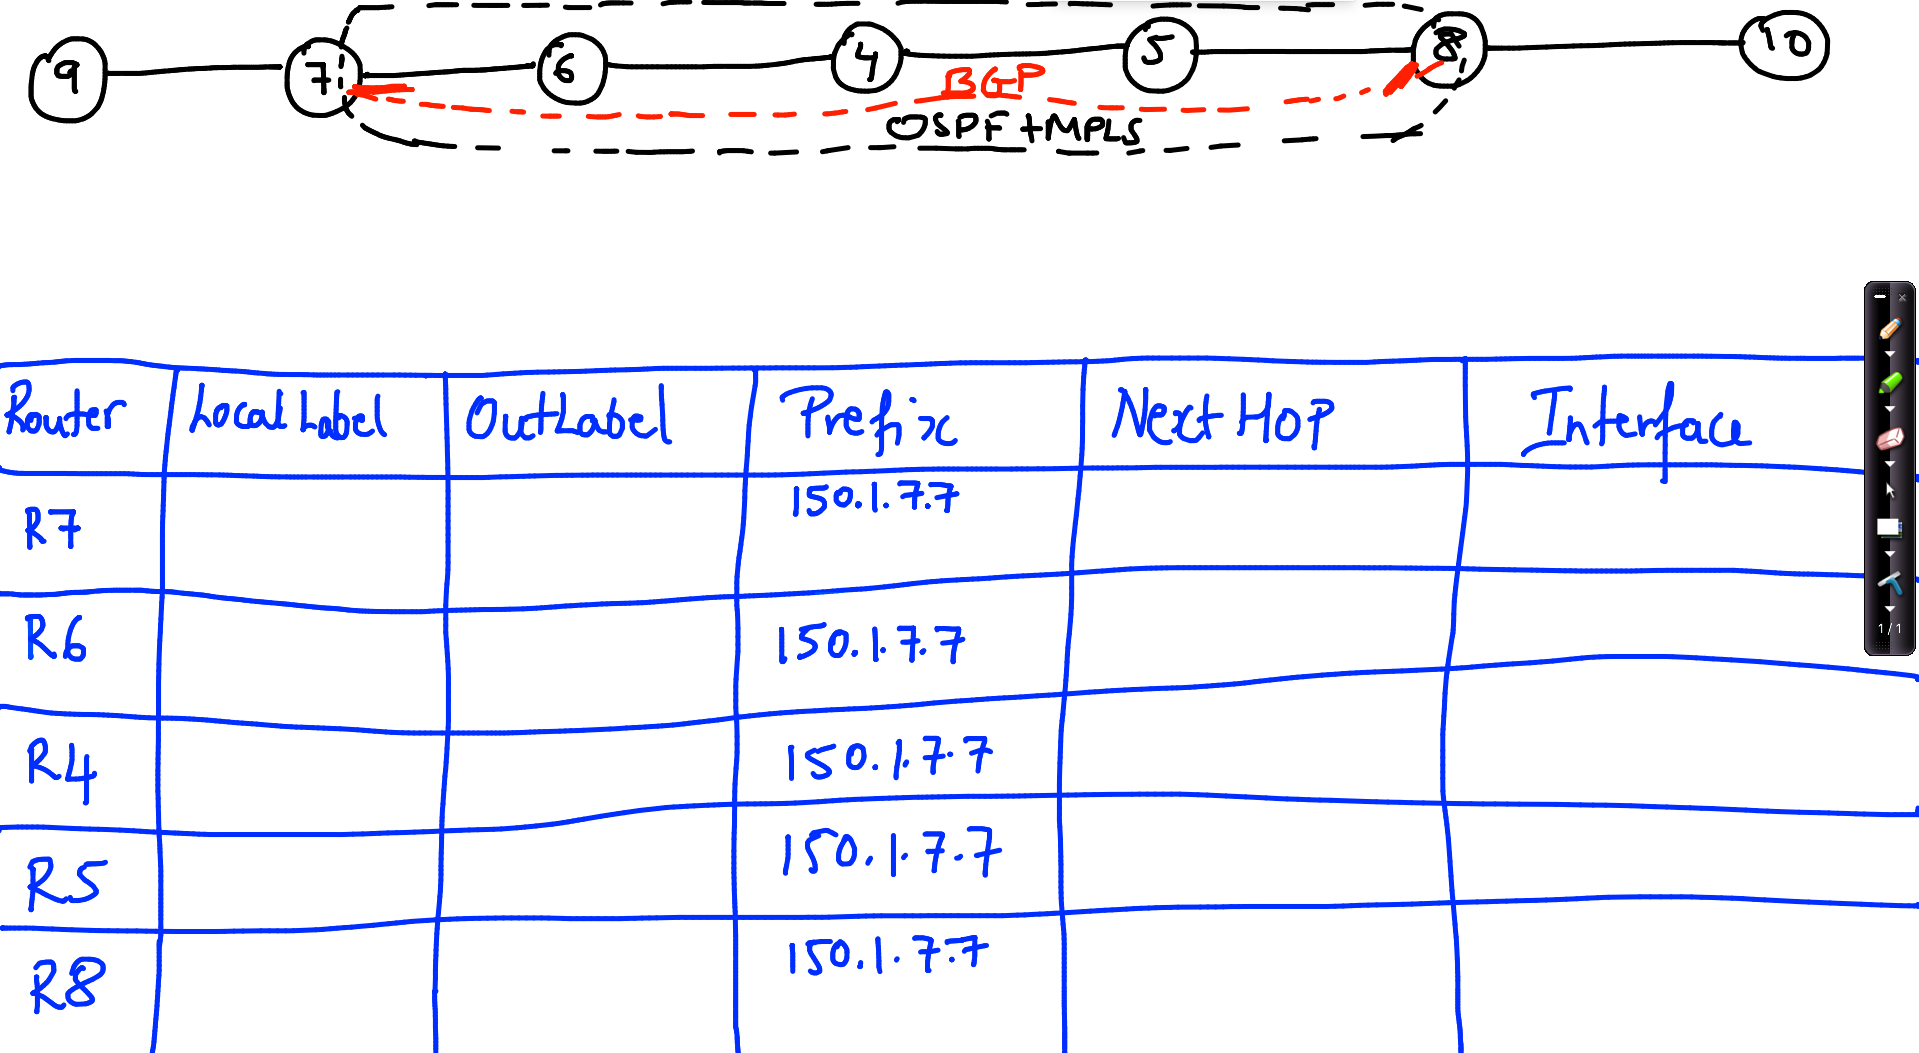 9 7 6 4 5 8 10
BGP
OSPF+MPLS
Router Local Label OutLabel Prefix Next HOP Interface
R7 150.1.7.7
R6 150.1.7.7
R4 150.1.7.7
R5 150.1.7.7
R8 150.1.7.7
1/1